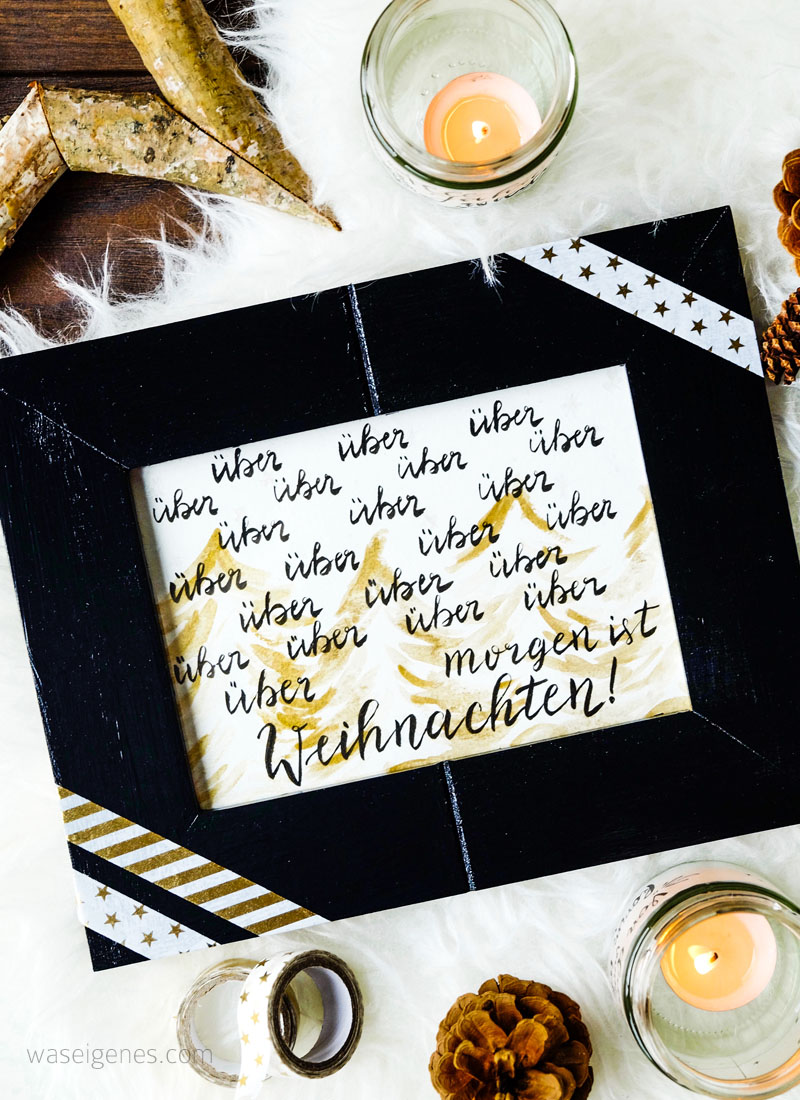 über über über
über über über über
über über über
über über über über
über über über
über über über über
über morgen ist
Weihnachten!
waseigenes.com